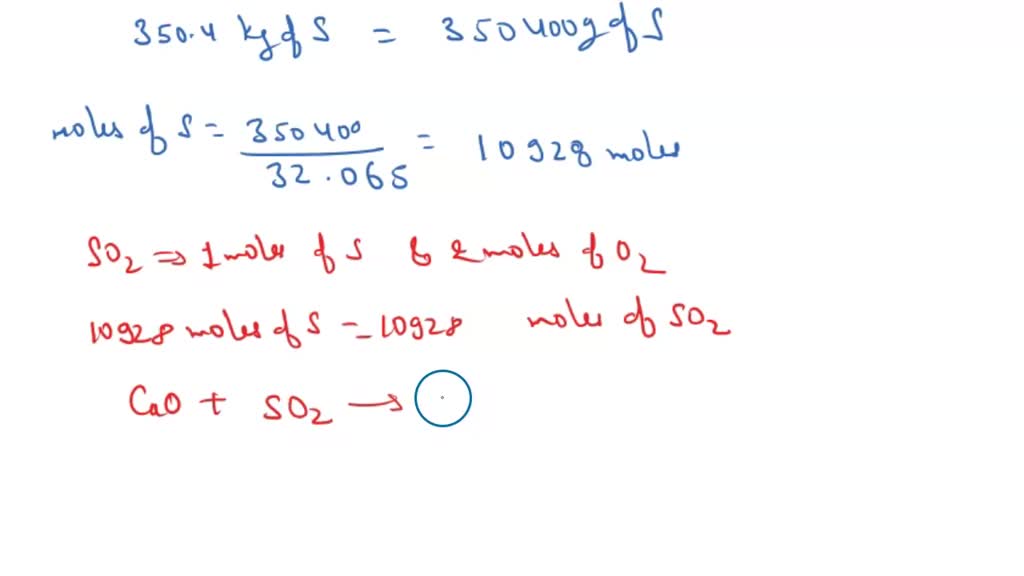 350.4 kg of S = 350400g of S
moles of S = 350400 / 32.065 = 10928 moles
SO2 ⇒ 1 moles of S & 2 moles of O2
10928 moles of S = 10928 moles of SO2
CaO + SO2 →